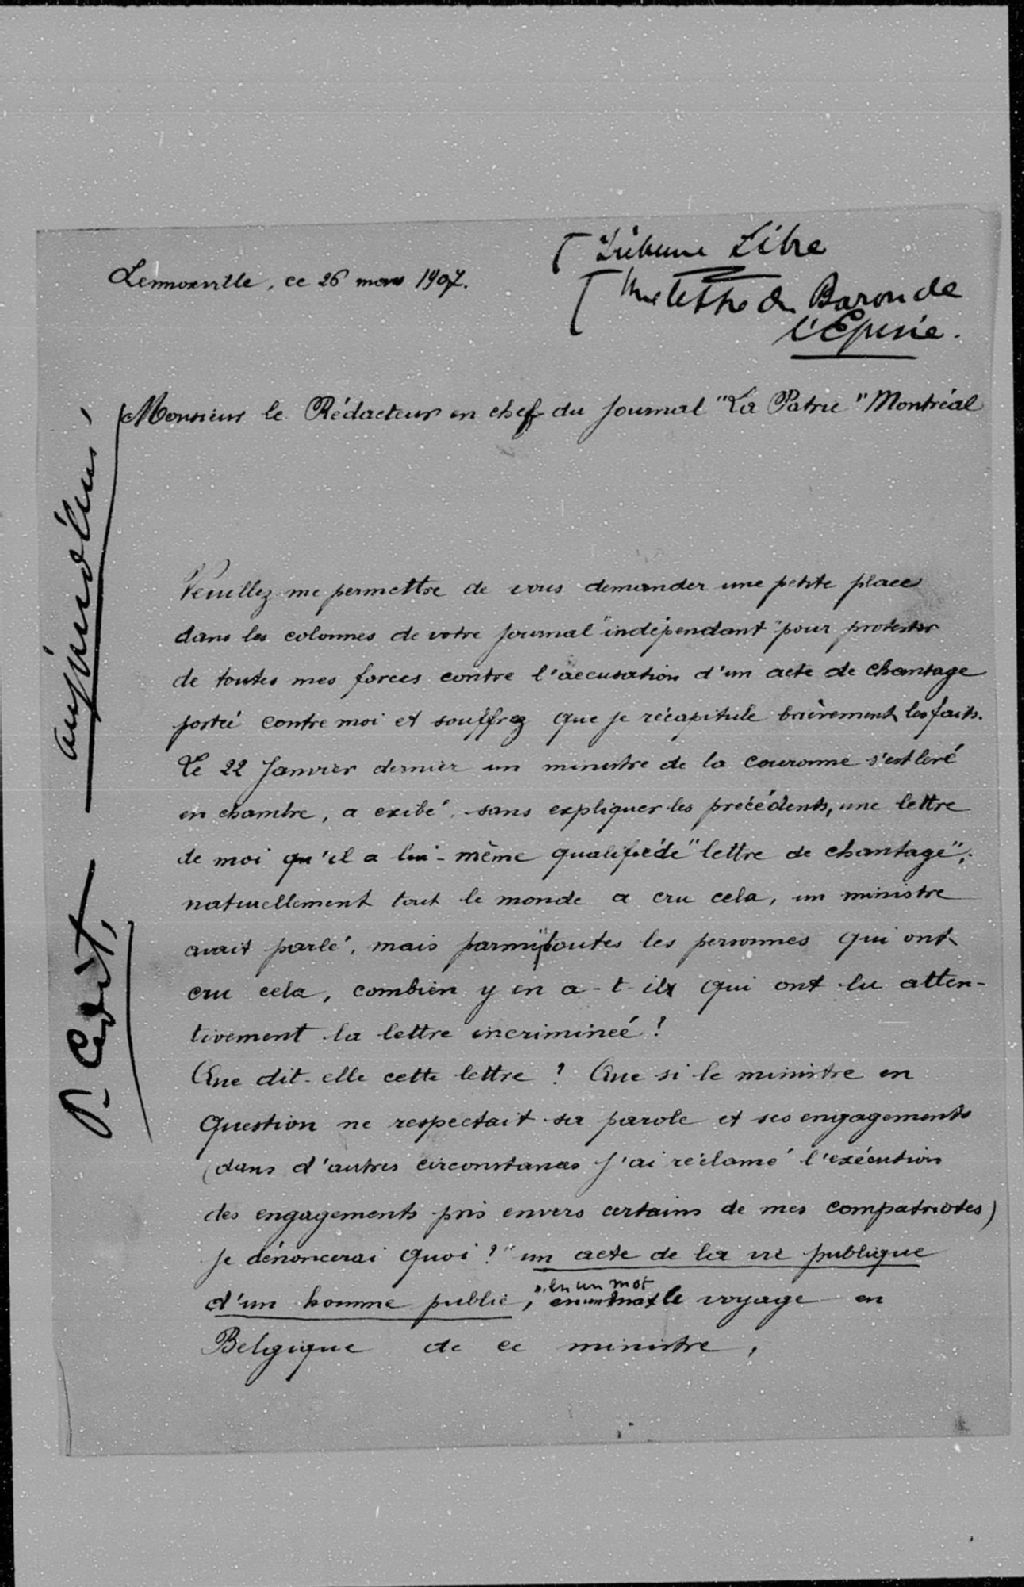 Lennoxville, ce 26 mars 1907.
Tribune Libre
Une lettre du Baron de
l'Epine.
Monsieur le Rédacteur en chef du Journal "La Patrie" Montréal
Veuillez me permettre de vous demander une petite place
dans les colonnes de votre journal "indépendant" pour protester
de toutes mes forces contre l'accusation d'un acte de chantage
porté contre moi et souffrez que je récapitule brièvement les faits.
Le 22 Janvier dernier un ministre de la couronne s'est levé
en chambre, a exibé, sans expliquer les précédents, une lettre
de moi qu'il a lui-même qualifié de "lettre de chantage",
naturellement tout le monde a cru cela, un ministre
avait parlé, mais parmi toutes les personnes qui ont
cru cela, combien y en a-t-il qui ont lu atten-
tivement la lettre incriminée!
Que dit-elle cette lettre? Que si le ministre en
question ne respectait sa parole et ses engagements
(dans d'autres circonstances j'ai réclamé l'exécution
des engagements pris envers certains de mes compatriotes)
je dénoncerai quoi? "un acte de la vie publique
d'un homme public, en un mot le voyage en
Belgique de ce ministre,